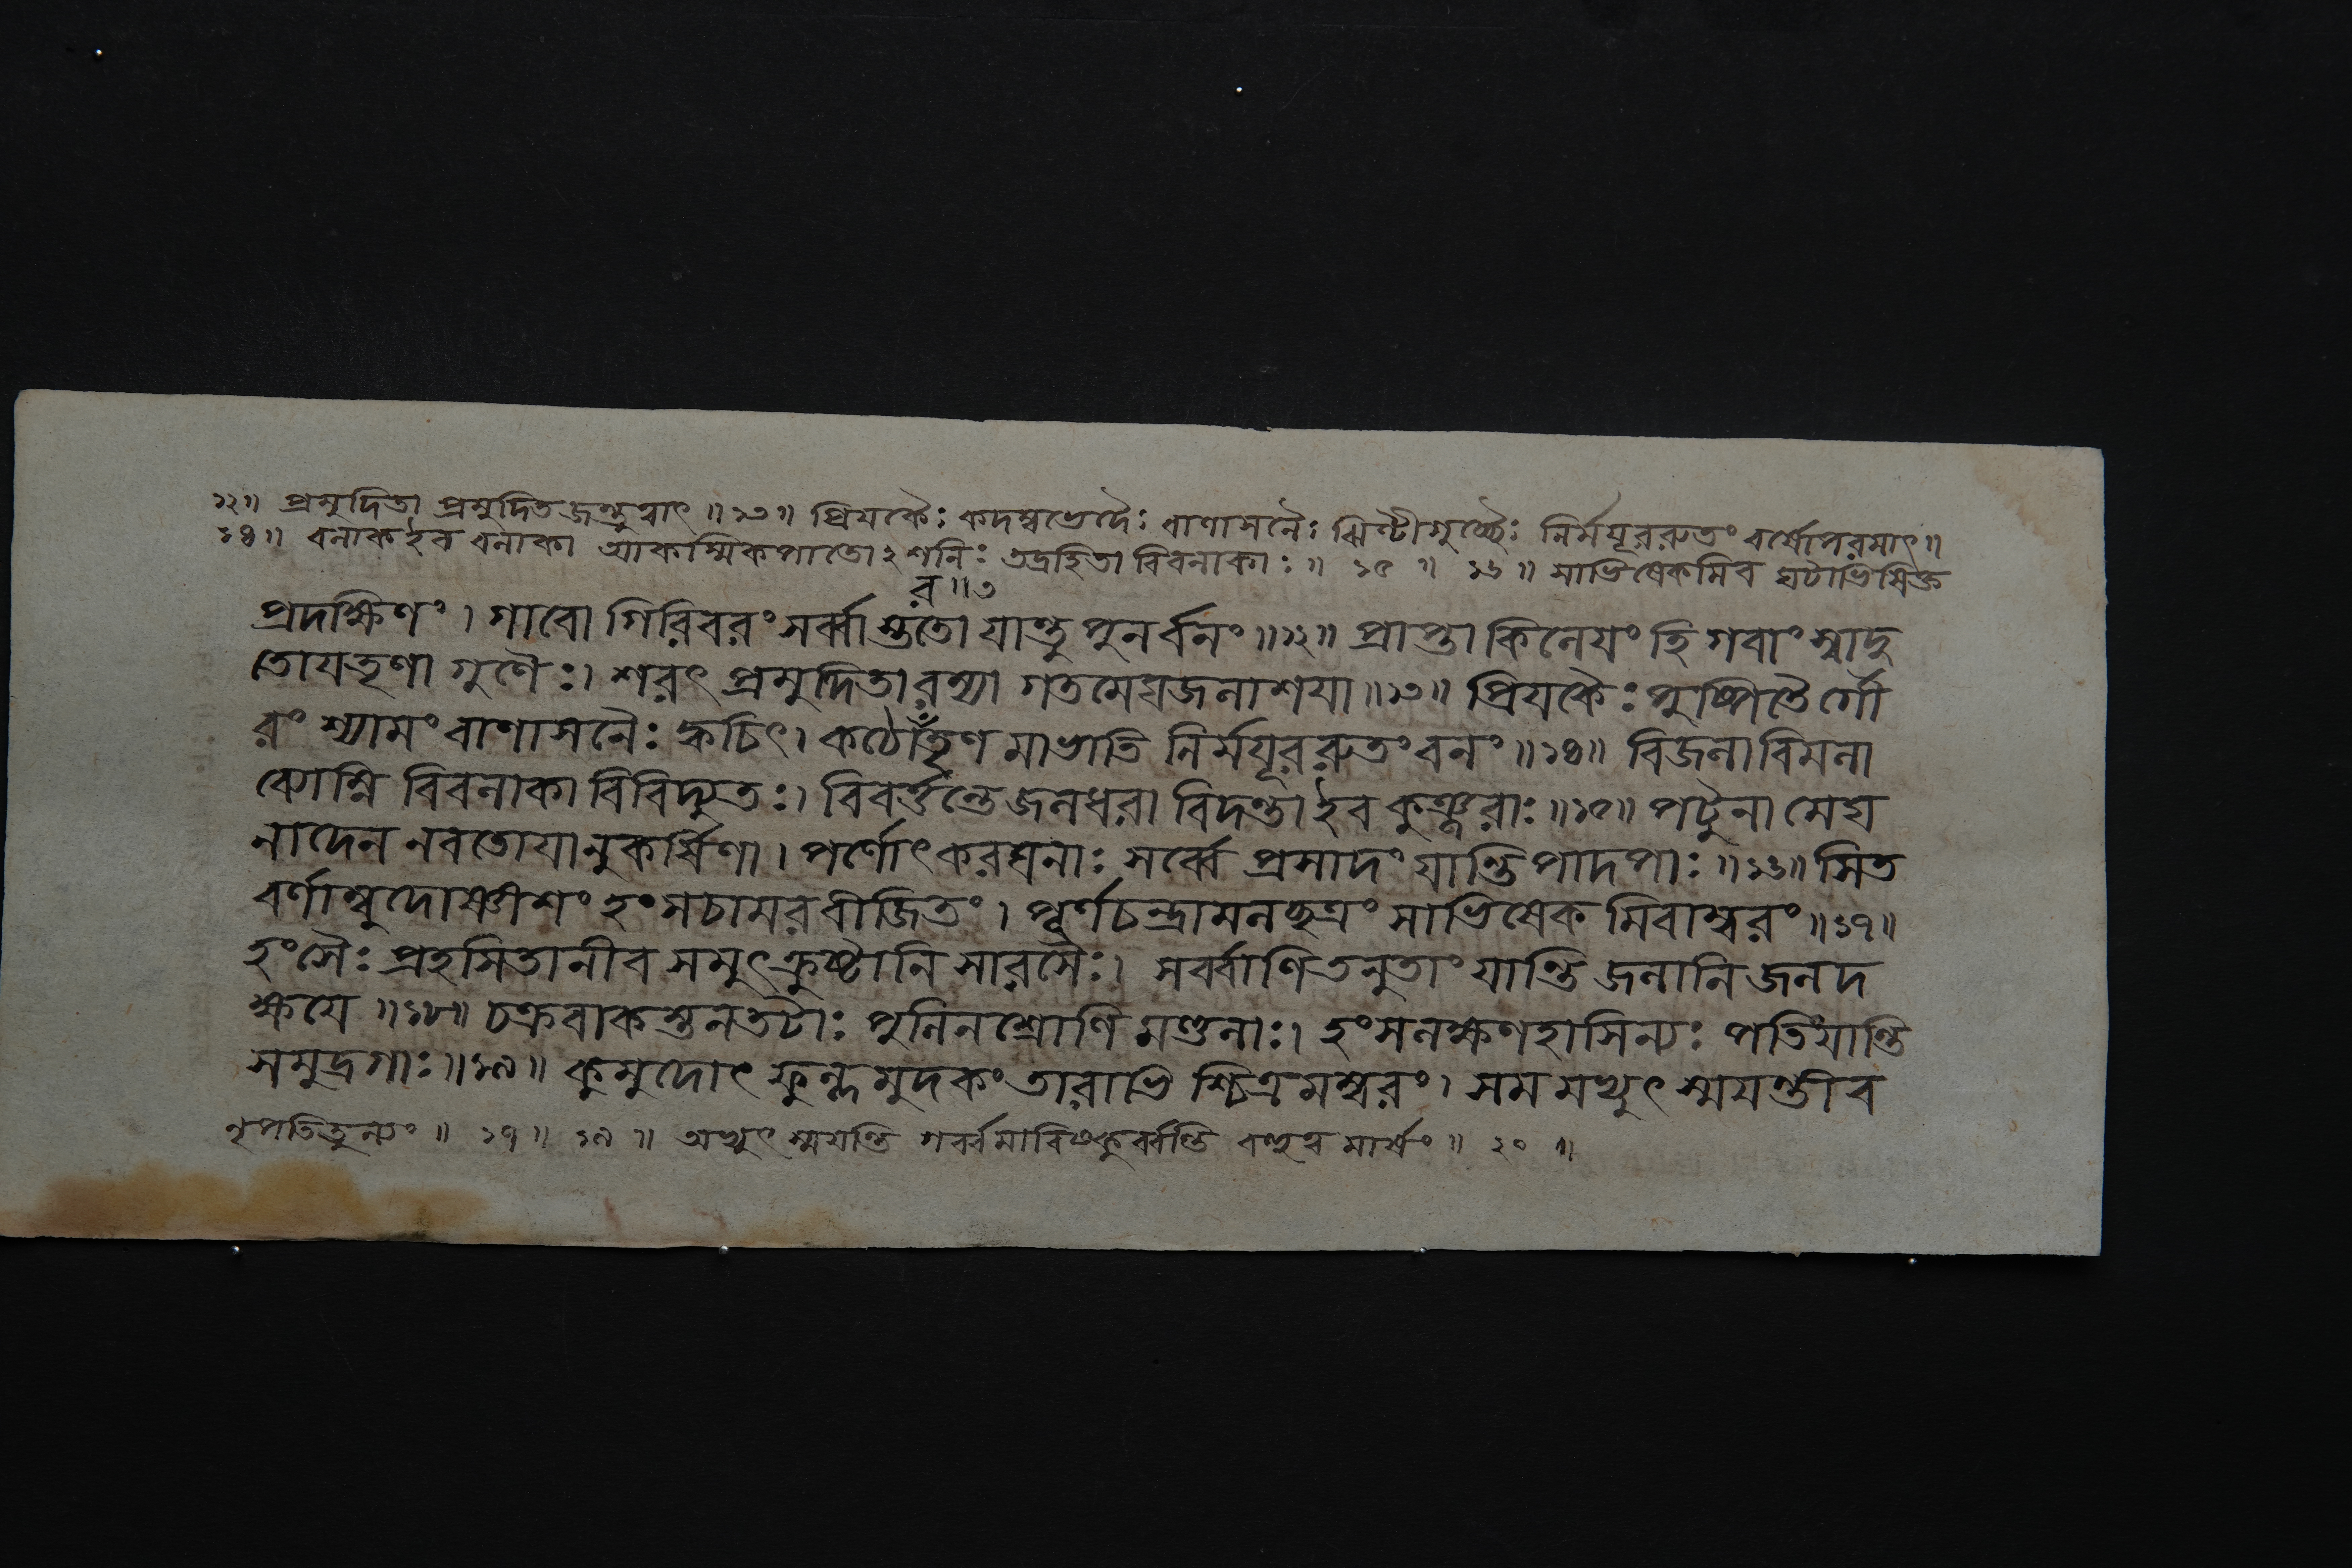 ১২॥ প্রমুদিতা প্রমুদিতজন্তুত্বাৎ ॥১৩॥ প্রিয়কৈঃ কদম্বভেদৈঃ বাণাসনৈঃ ঝিণ্টীগুচ্ছৈঃ নির্ময়ূররুতং বর্ষোপরমাৎ॥
১৪॥ বলাকইব বলাকা আকস্মিকপাতো২শনিঃ তদ্রহিতা বিবলাকাঃ॥ ১৫ ॥ ১৬॥ সাভিষেকমিব ঘটাভিষিক্ত
র॥৩
প্রদক্ষিণং। গাবো গিরিবরং সর্ব্বাস্ততো যান্তু পুনর্বনং॥১২॥ প্রাপ্তা কিলেয়ং হি গবাং স্বাদু
তোয়তৃণা গুণৈঃ। শরৎ প্রমুদিতা রম্যা গতমেঘজলাশয়া॥১৩॥ প্রিয়কৈঃ পুষ্পিতৈর্গৌ
রং শ্যামং বাণাসনৈঃ ক্বচিৎ। কঠোরতৃণ মাভাতি নির্ময়ূররুতং বনং॥১৪॥ বিজলা বিমলা
ব্যোম্নি বিবলাকা বিবিদ্যুতঃ। বিবর্ত্তন্তে জলধরা বিদন্তা ইব কুঞ্জরাঃ॥১৫॥ পটুনা মেঘ
নাদেন নবতোয়ানুকর্ষিণা। পর্ণোৎকরঘনাঃ সর্ব্বে প্রসাদং যান্তি পাদপাঃ॥১৬॥ সিত
বর্ণাম্বুদোষ্ণীশং হংসচামরবীজিতং। পূর্ণচন্দ্রামলচ্ছত্রং সাভিষেক মিবাম্বরং॥১৭॥
হংসৈঃ প্রহসিতানীব সমুৎক্রুষ্টানি সারসৈঃ। সর্ব্বাণি তনুতাং যান্তি জলানি জলদ
ক্ষয়ে॥১৮॥ চক্রবাকস্তনতটাঃ পুলিনশ্রোণি মণ্ডলাঃ। হংসলক্ষণহাসিন্যঃ পতিং যান্তি
সমুদ্রগাঃ॥১৯॥ কুমুদোৎফুল্ল মুদকং তারাভি শ্চিত্র মম্বরং। সম মভ্যুৎস্ময়ন্তীব
নৃপতিতুল্যং॥ ১৭॥ ১৯॥ অভ্যুৎস্ময়ন্তি গর্ব্বমাবিষ্কুর্ব্বন্তি॥ ২০ ॥